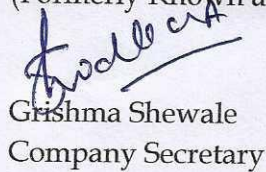 (Formerly Known a
Grishma Shewale
Company Secretary